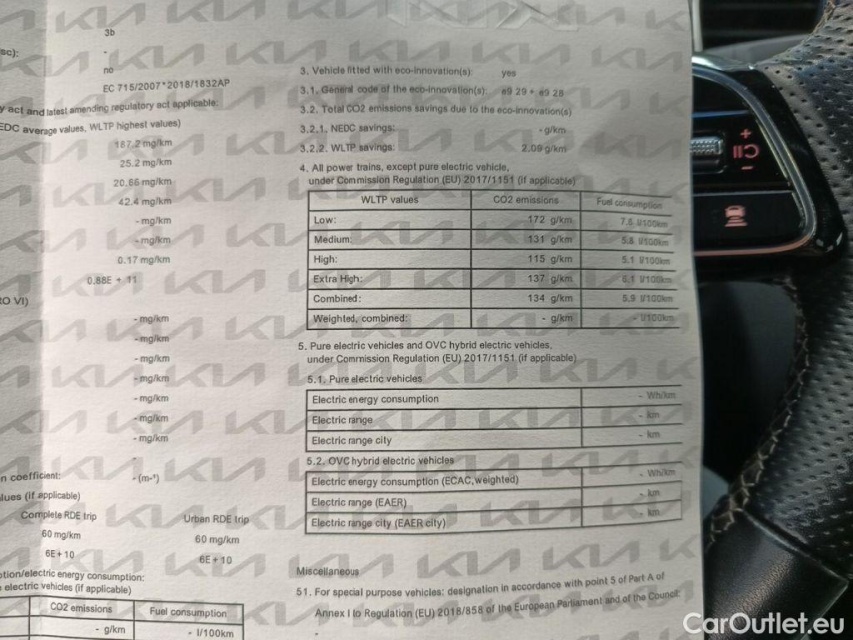 3b
sc):
-
no
EC 715/2007*2018/1832AP
y act and latest amending regulatory act applicable:
EDC average values, WLTP highest values)
187.2 mg/km
25.2 mg/km
20.66 mg/km
42.4 mg/km
- mg/km
- mg/km
0.17 mg/km
0.88E + 11
RO VI)
- mg/km
- mg/km
- mg/km
- mg/km
- mg/km
- mg/km
- mg/km
n coefficient:
- (m-¹)
lues (if applicable)
Complete RDE trip Urban RDE trip
60 mg/km 60 mg/km
6E + 10 6E + 10
ption/electric energy consumption:
e electric vehicles (if applicable)
CO2 emissions Fuel consumption
- g/km - l/100km
3. Vehicle fitted with eco-innovation(s): yes
3.1. General code of the eco-innovation(s): e9 29 + e9 28
3.2. Total CO2 emissions savings due to the eco-innovation(s)
3.2.1. NEDC savings: - g/km
3.2.2. WLTP savings: 2.09 g/km
4. All power trains, except pure electric vehicle,
under Commission Regulation (EU) 2017/1151 (if applicable)
WLTP values CO2 emissions Fuel consumption
Low: 172 g/km 7.6 l/100km
Medium: 131 g/km 5.8 l/100km
High: 115 g/km 5.1 l/100km
Extra High: 137 g/km 6.1 l/100km
Combined: 134 g/km 5.9 l/100km
Weighted, combined: - g/km - l/100km
5. Pure electric vehicles and OVC hybrid electric vehicles,
under Commission Regulation (EU) 2017/1151 (if applicable)
5.1. Pure electric vehicles
Electric energy consumption - Wh/km
Electric range - km
Electric range city - km
5.2. OVC hybrid electric vehicles
Electric energy consumption (ECAC,weighted) - Wh/km
Electric range (EAER) - km
Electric range city (EAER city) - km
Miscellaneous
51. For special purpose vehicles: designation in accordance with point 5 of Part A of
Annex I to Regulation (EU) 2018/858 of the European Parliament and of the Council:
-
CarOutlet.eu